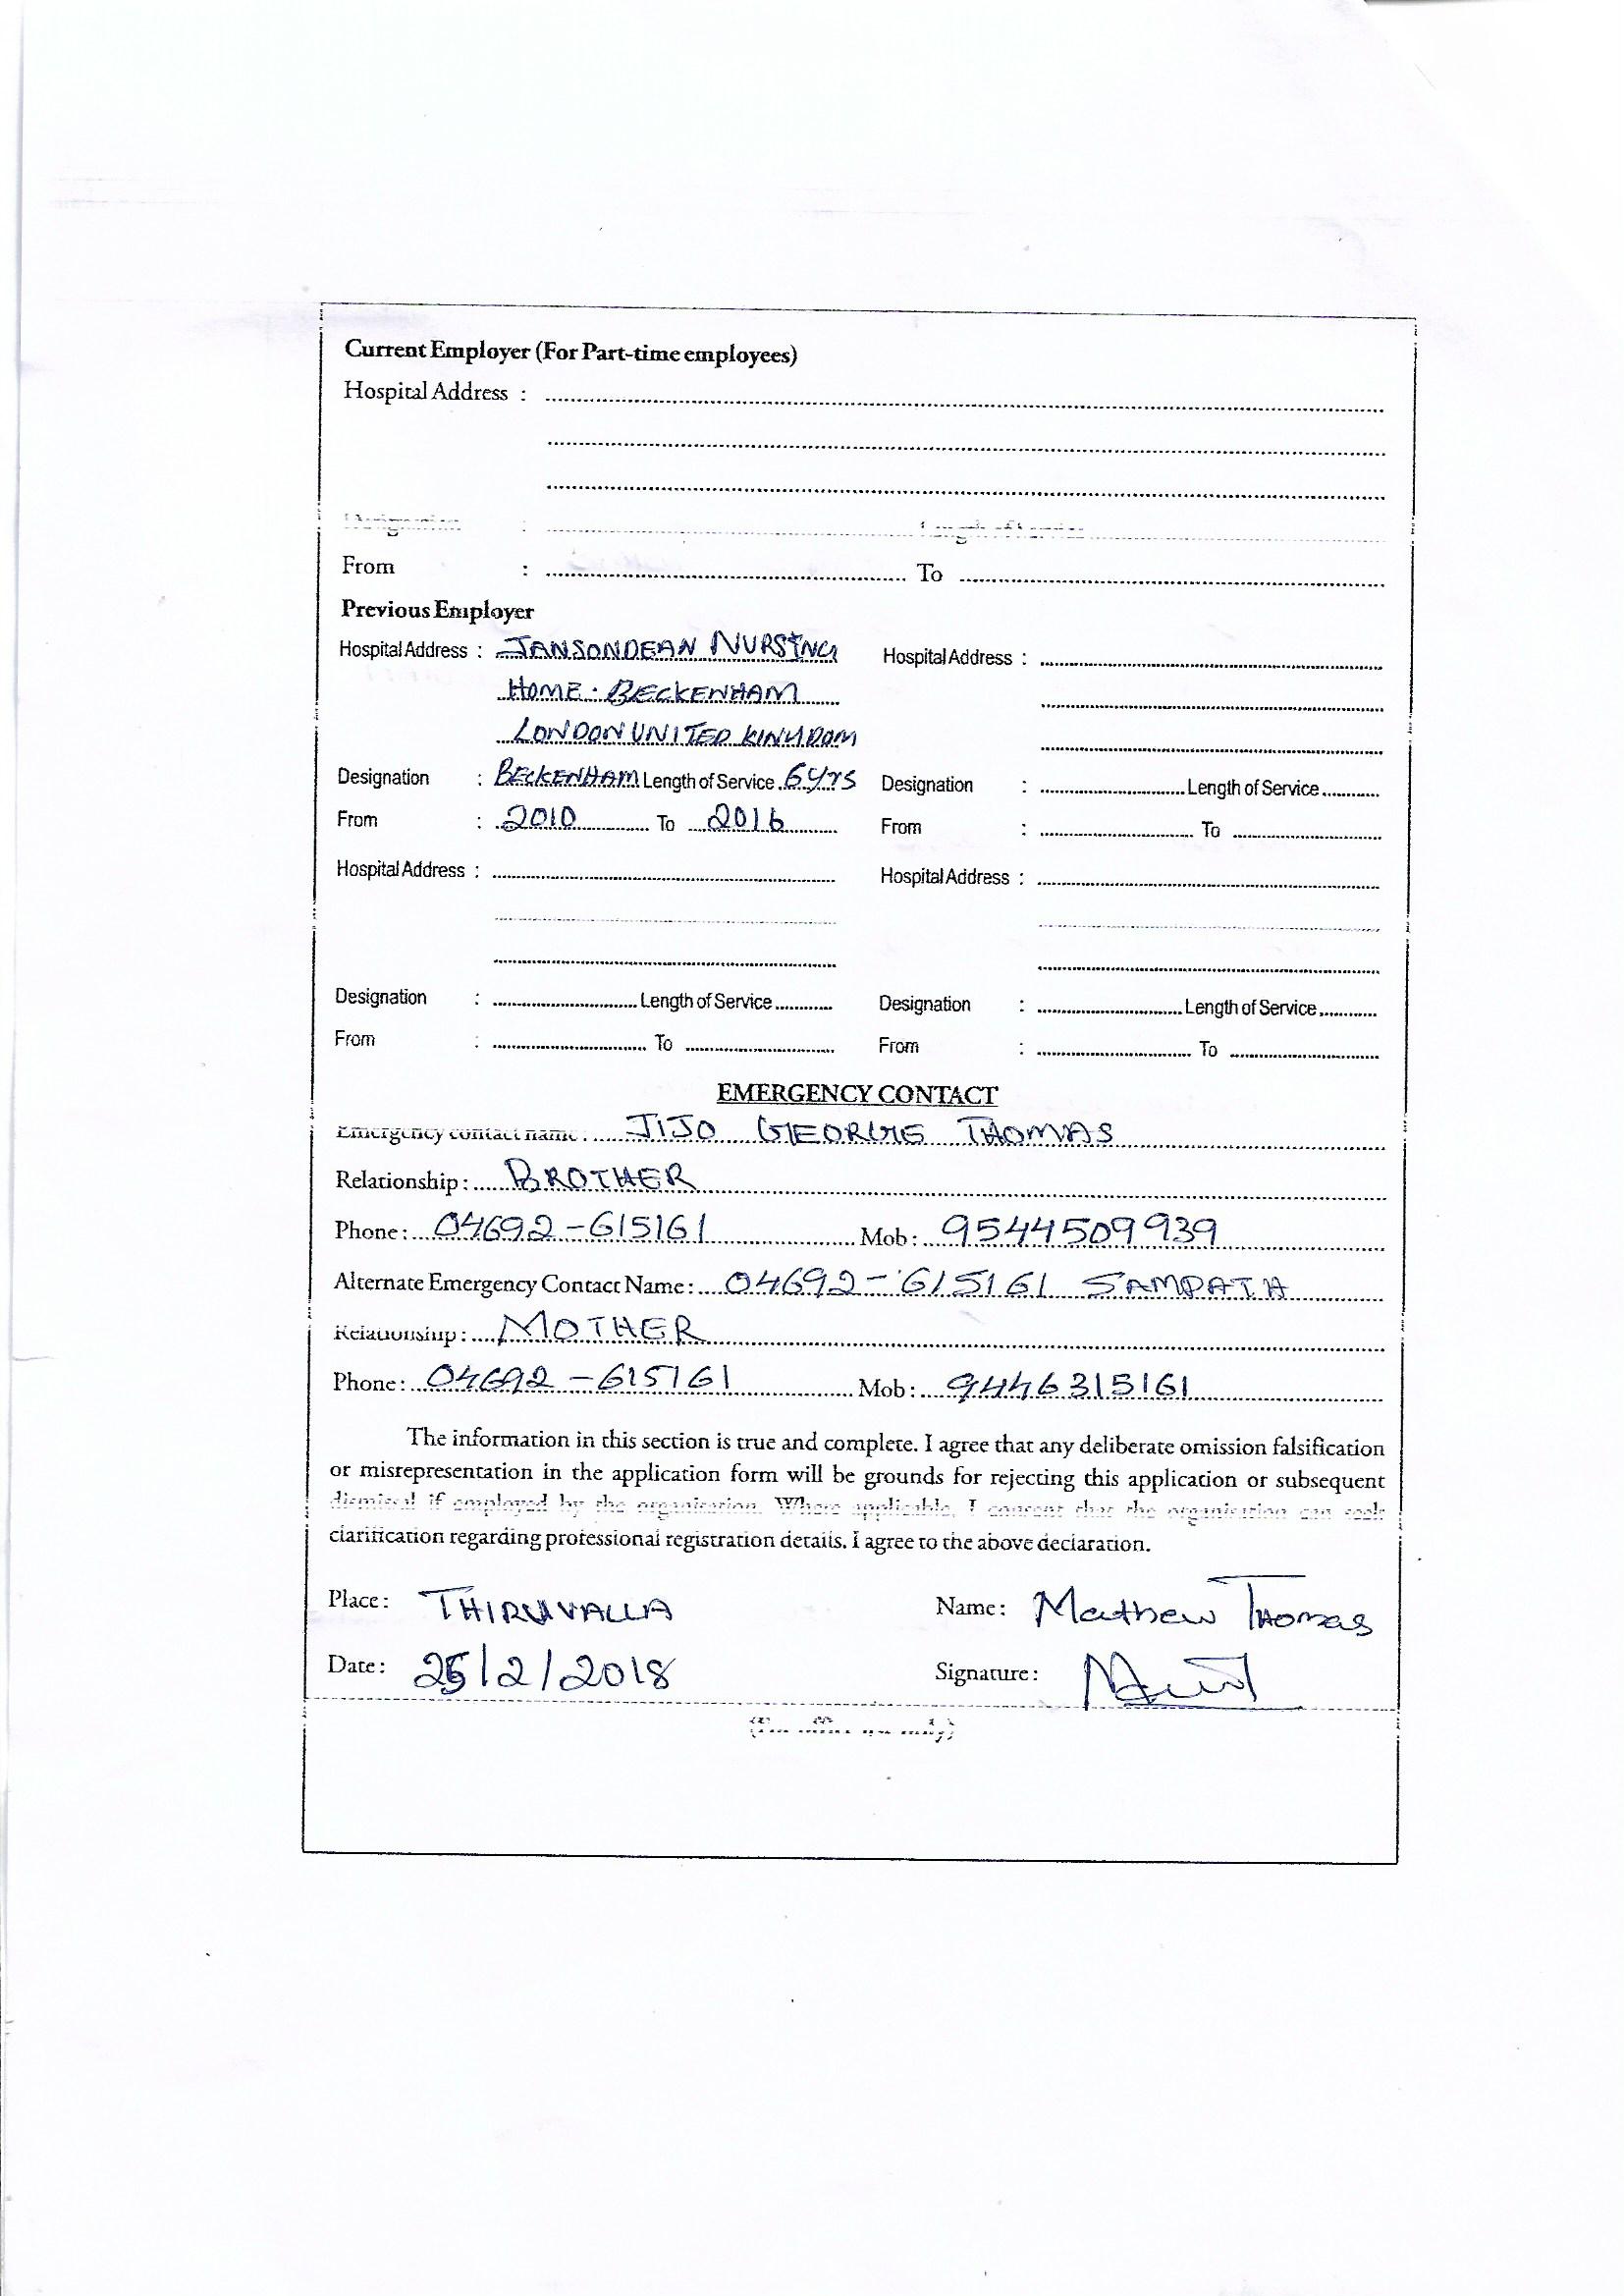 Current Employer (For Part-time employees)
Hospital Address :
Designation : Length of Service
From : To
Previous Employer
Hospital Address : JANSONDEAN NURSING Hospital Address :
HOME. BECKENHAM
LONDON UNITED KINGDOM
Designation : BECKENHAM Length of Service 6yrs Designation : Length of Service
From : 2010 To 2016 From : To
Hospital Address : Hospital Address :
Designation : Length of Service Designation : Length of Service
From : To From : To
EMERGENCY CONTACT
Emergency contact name : JIJO GEORGE THOMAS
Relationship : BROTHER
Phone : 04692-615161 Mob : 9544509939
Alternate Emergency Contact Name : 04692-615161 SAMPATH
Relationship : MOTHER
Phone : 04692-615161 Mob : 9446315161
The information in this section is true and complete. I agree that any deliberate omission falsification
or misrepresentation in the application form will be grounds for rejecting this application or subsequent
dismissal if employed by the organisation. Where applicable, I consent that the organisation can seek
clarification regarding professional registration details. I agree to the above declaration.
Place : THIRUVALLA Name : Mathew Thomas
Date : /2/2018 Signature :
(For office use only)